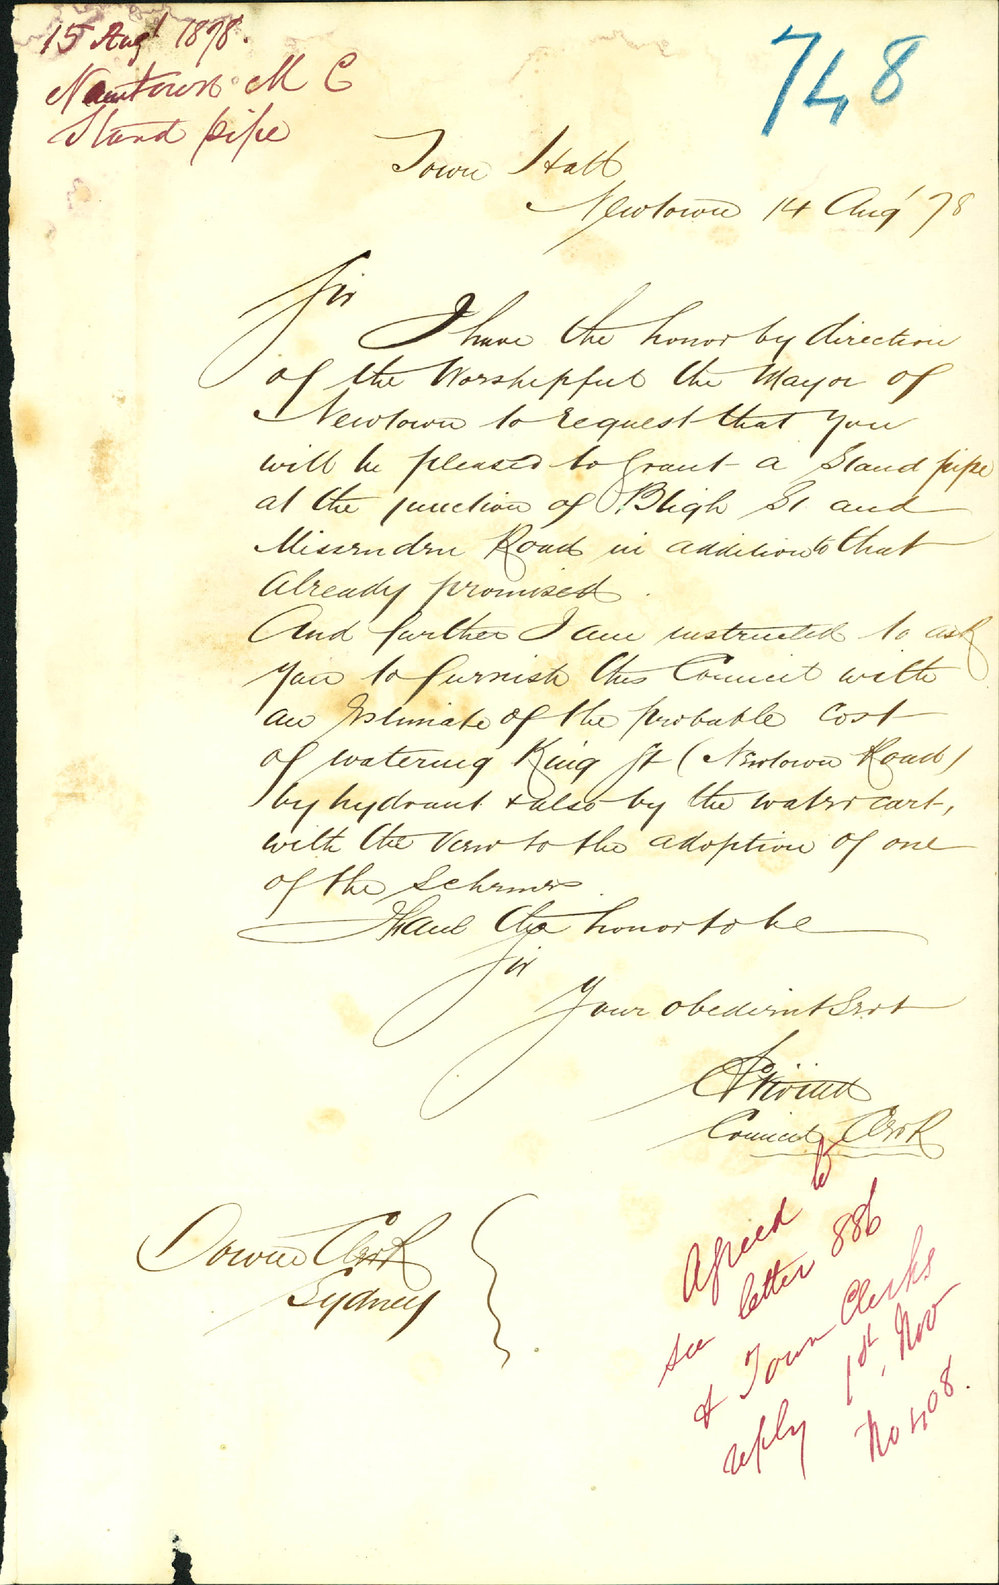 15 Augt 1878.
Newtown M C
Stand pipe
748
Town Hall
Newtown 14 Augt 78
Sir
I have the honor by direction
of the Worshipful the Mayor of
Newtown to request that you
will be pleased to grant a Stand pipe
at the junction of Bligh St and
Missenden Road in addition to that
already promised.
And further I am instructed to ask
you to furnish this Council with
an Estimate of the probable cost
of watering King St (Newtown Road)
by hydrant & also by the water cart,
with the view to the adoption of one
of the schemes.
I have the honor to be
Sir
Your obedient Servt
Council Clerk
Town Clerk
Sydney
Agreed to
see letter 886
& Town Clerks
reply 1st Nov
No 408.